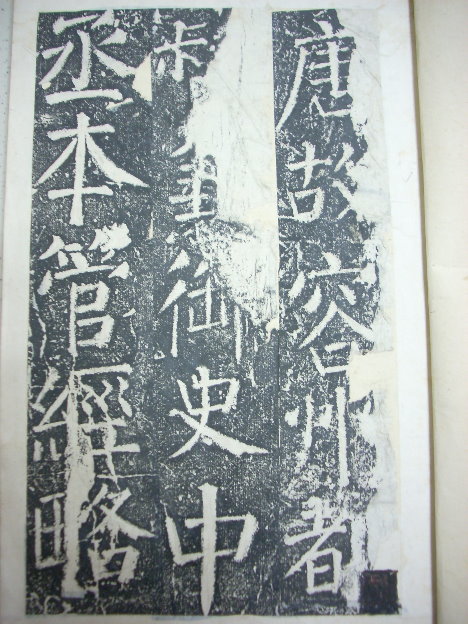 唐故容州都
御史中
丞本管經略